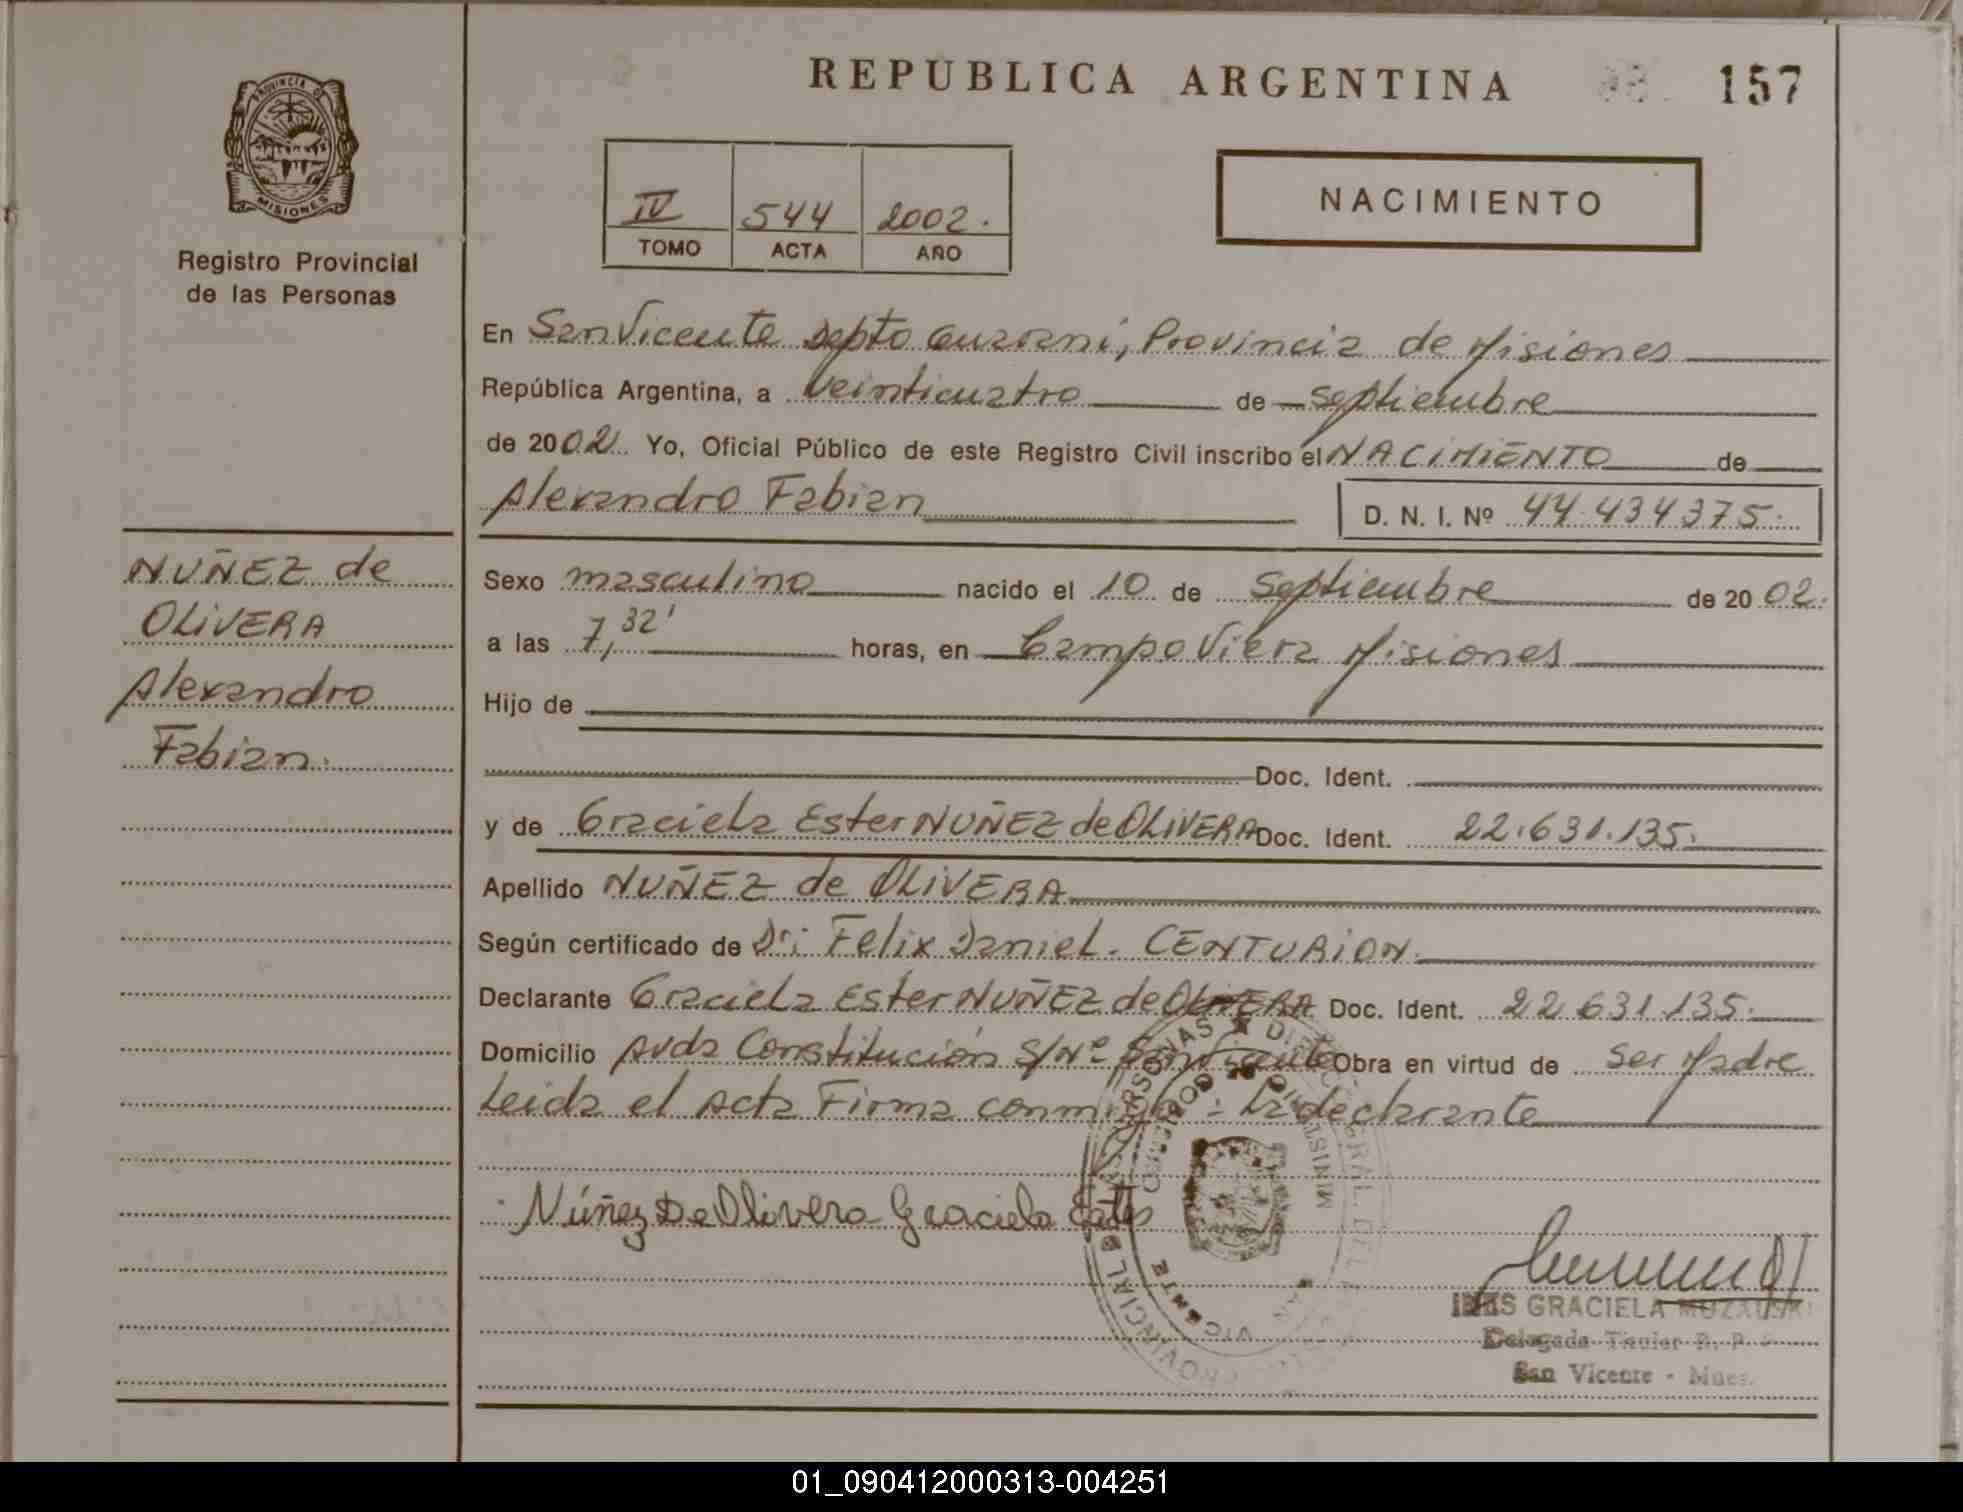 REPUBLICA ARGENTINA 157
PROVINCIA DE
MISIONES
Registro Provincial
de las Personas
IV 544 2002.
TOMO ACTA AÑO
NACIMIENTO
En San Vicente Depto Guarani, Provincia de Misiones
República Argentina, a Veinticuatro de Septiembre
de 2002 Yo, Oficial Público de este Registro Civil inscribo el NACIMIENTO de
Alexandro Fabian D. N. I. Nº 44.434375.
NUÑEZ de
OLIVERA
Alexandro
Fabian.
Sexo masculino nacido el 10 de Septiembre de 2002.
a las 7,32' horas, en Campo Viera Misiones
Hijo de
Doc. Ident.
y de Graciela Ester NUÑEZ de OLIVERA Doc. Ident. 22.631.135.
Apellido NUÑEZ de OLIVERA
Según certificado de Dr: Felix Daniel. CENTURION.
Declarante Graciela Ester NUÑEZ de OLIVERA Doc. Ident. 22.631.135.
Domicilio Avda Constitución S/Nº San Vicente Obra en virtud de Ser Madre
Leida el Acta Firma conmigo: La declarante
Núñez De Olivera Graciela Ester
INES GRACIELA
Delegada Titular R. P.
San Vicente - Mnes.
01_090412000313-004251